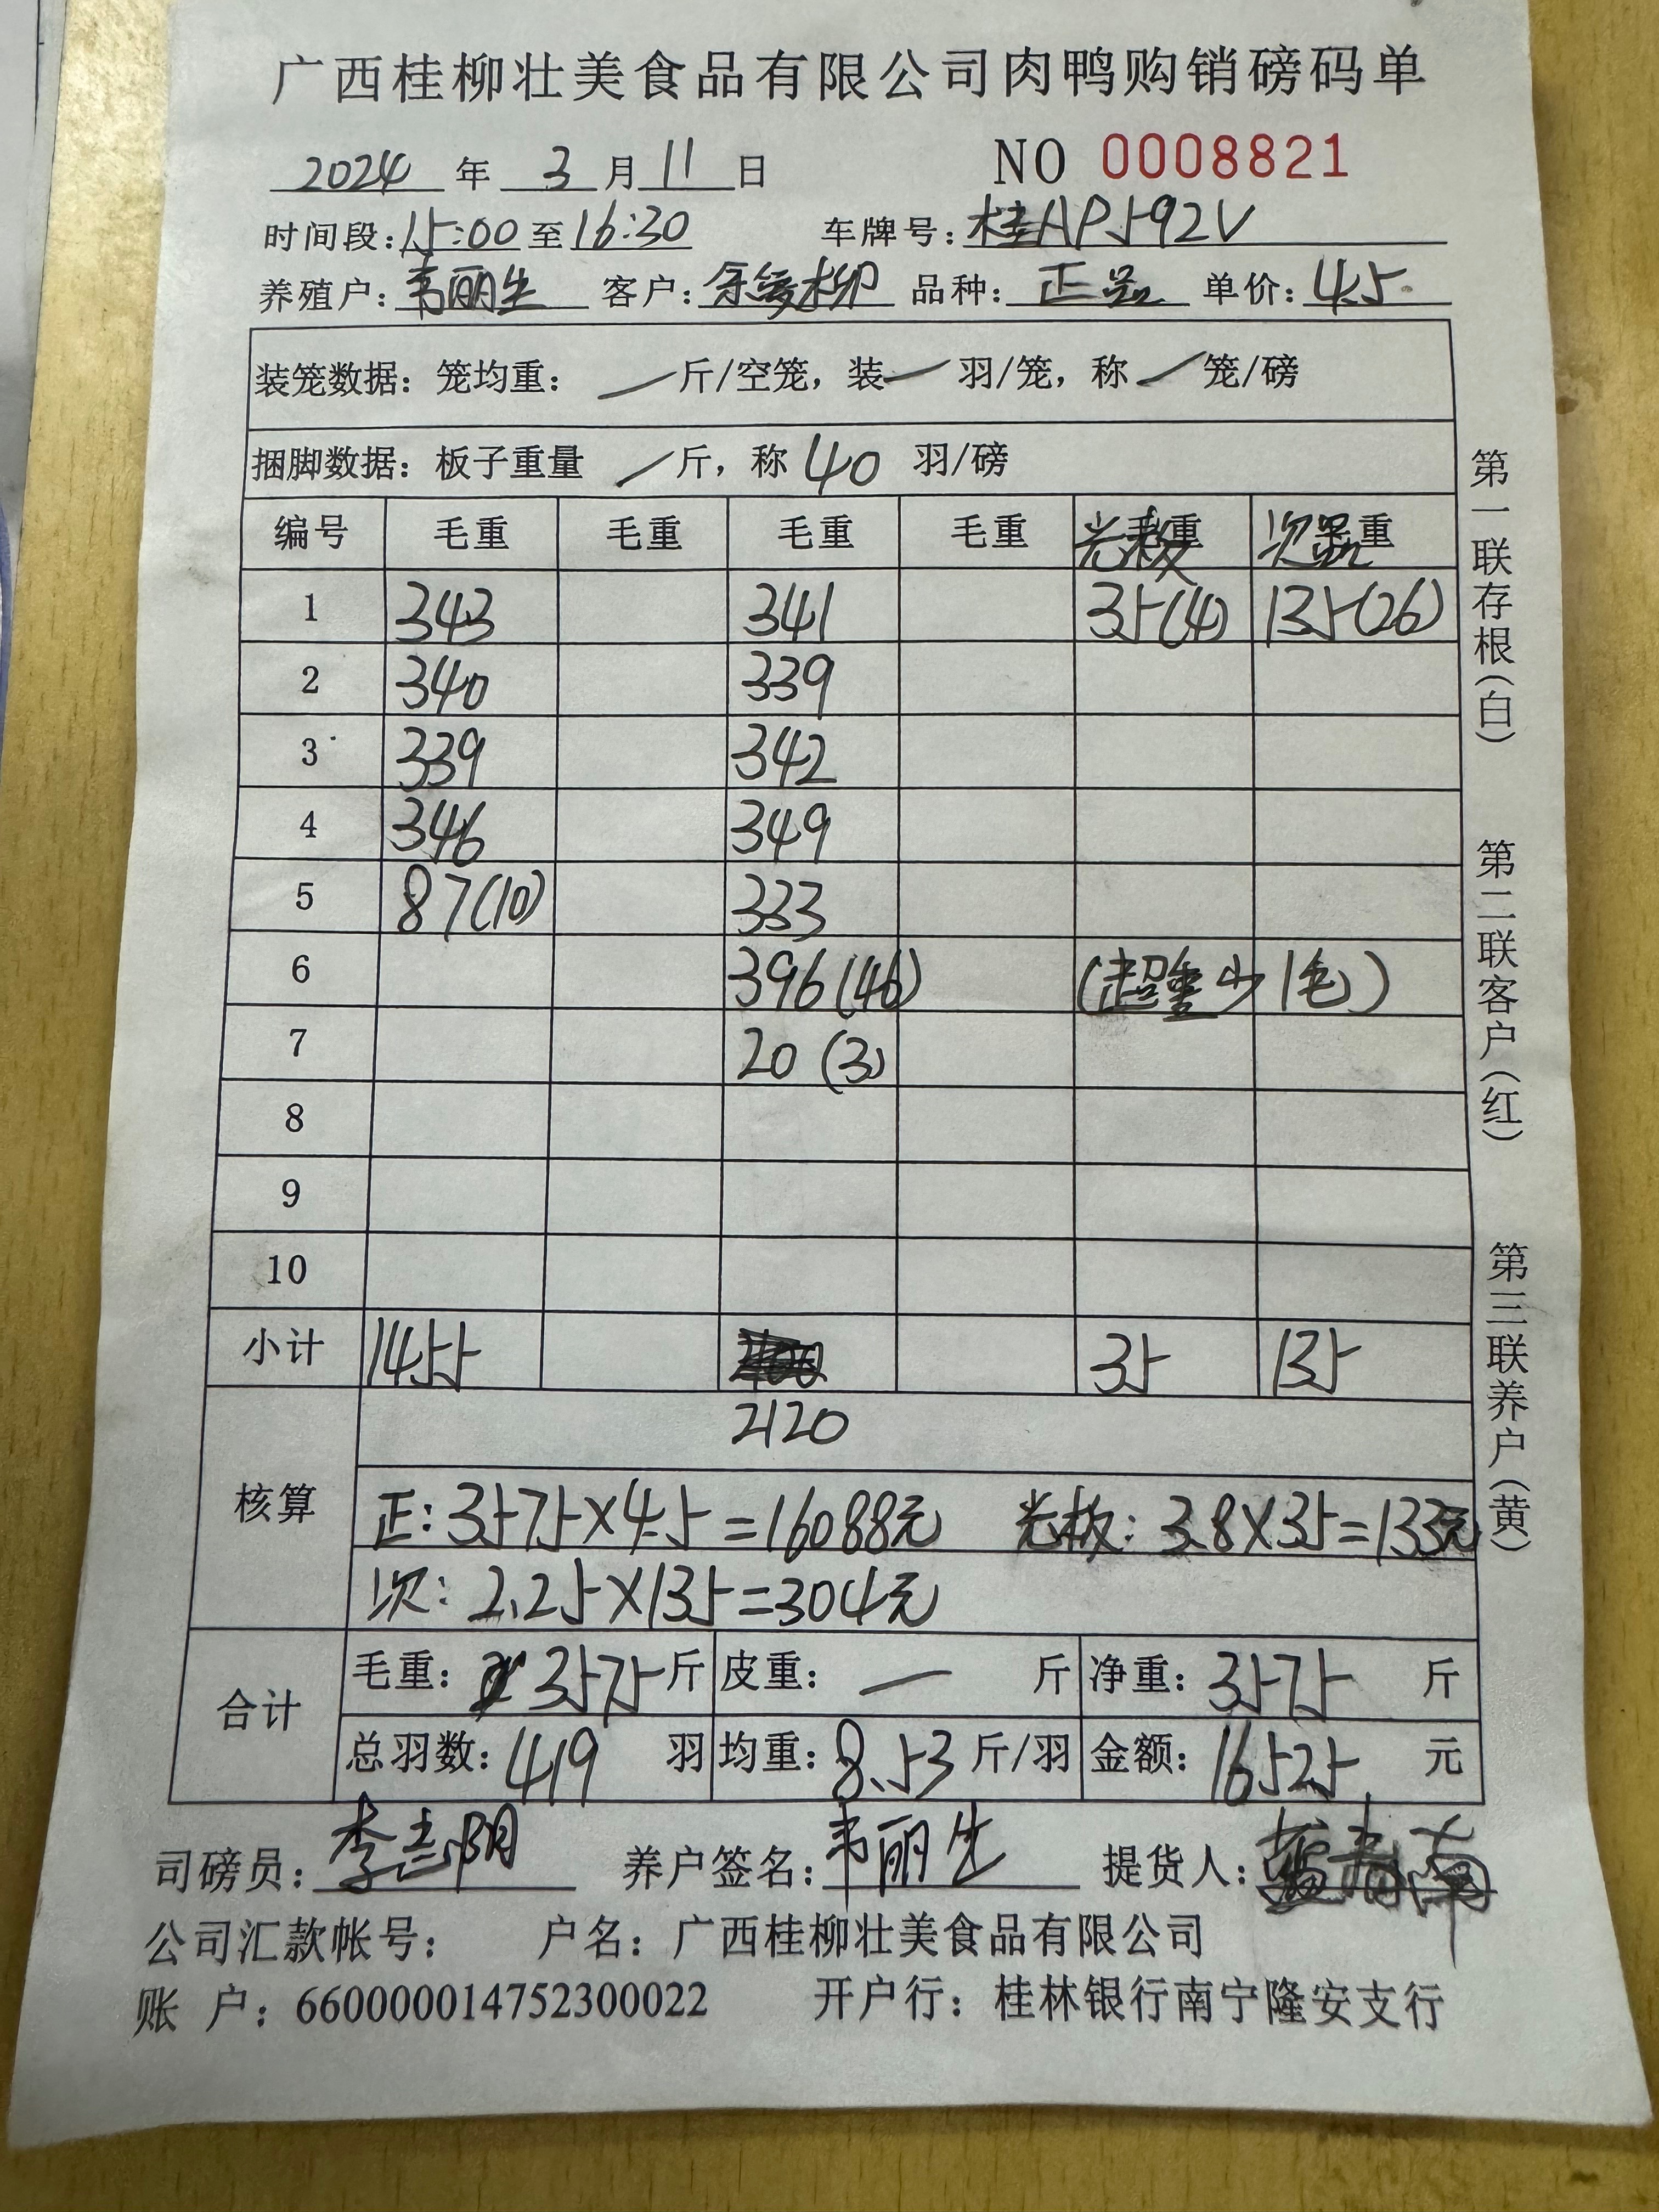 广西桂柳壮美食品有限公司肉鸭购销磅码单
2024 年 3 月 11 日 NO 0008821
时间段:15:00 至 16:30 车牌号:桂AP592V
养殖户:韦丽生 客户:余爱柳 品种:正品 单价:4.5
装笼数据:笼均重: 一 斤/空笼,装 一 羽/笼,称 一 笼/磅
捆脚数据:板子重量 一 斤,称 40 羽/磅
编号 毛重 毛重 毛重 毛重 光板 次品
1 343 341 35(4) 135(26)
2 340 339
3 339 342
4 346 349
5 87(10) 333
6 396(46) (超重少1毛)
7 20(3)
8
9
10
小计 1455 35 135
2120
核算
正:3575×4.5=16088元 光板:3.8×35=133元
次:2.25×135=304元
合计
毛重:3575斤 皮重: 一 斤 净重:3575 斤
总羽数:419 羽 均重:8.53 斤/羽 金额:16525 元
司磅员:李志阴 养户签名:韦丽生 提货人:
公司汇款帐号: 户名:广西桂柳壮美食品有限公司
账 户:660000014752300022 开户行:桂林银行南宁隆安支行
第一联存根(白)
第二联客户(红)
第三联养户(黄)